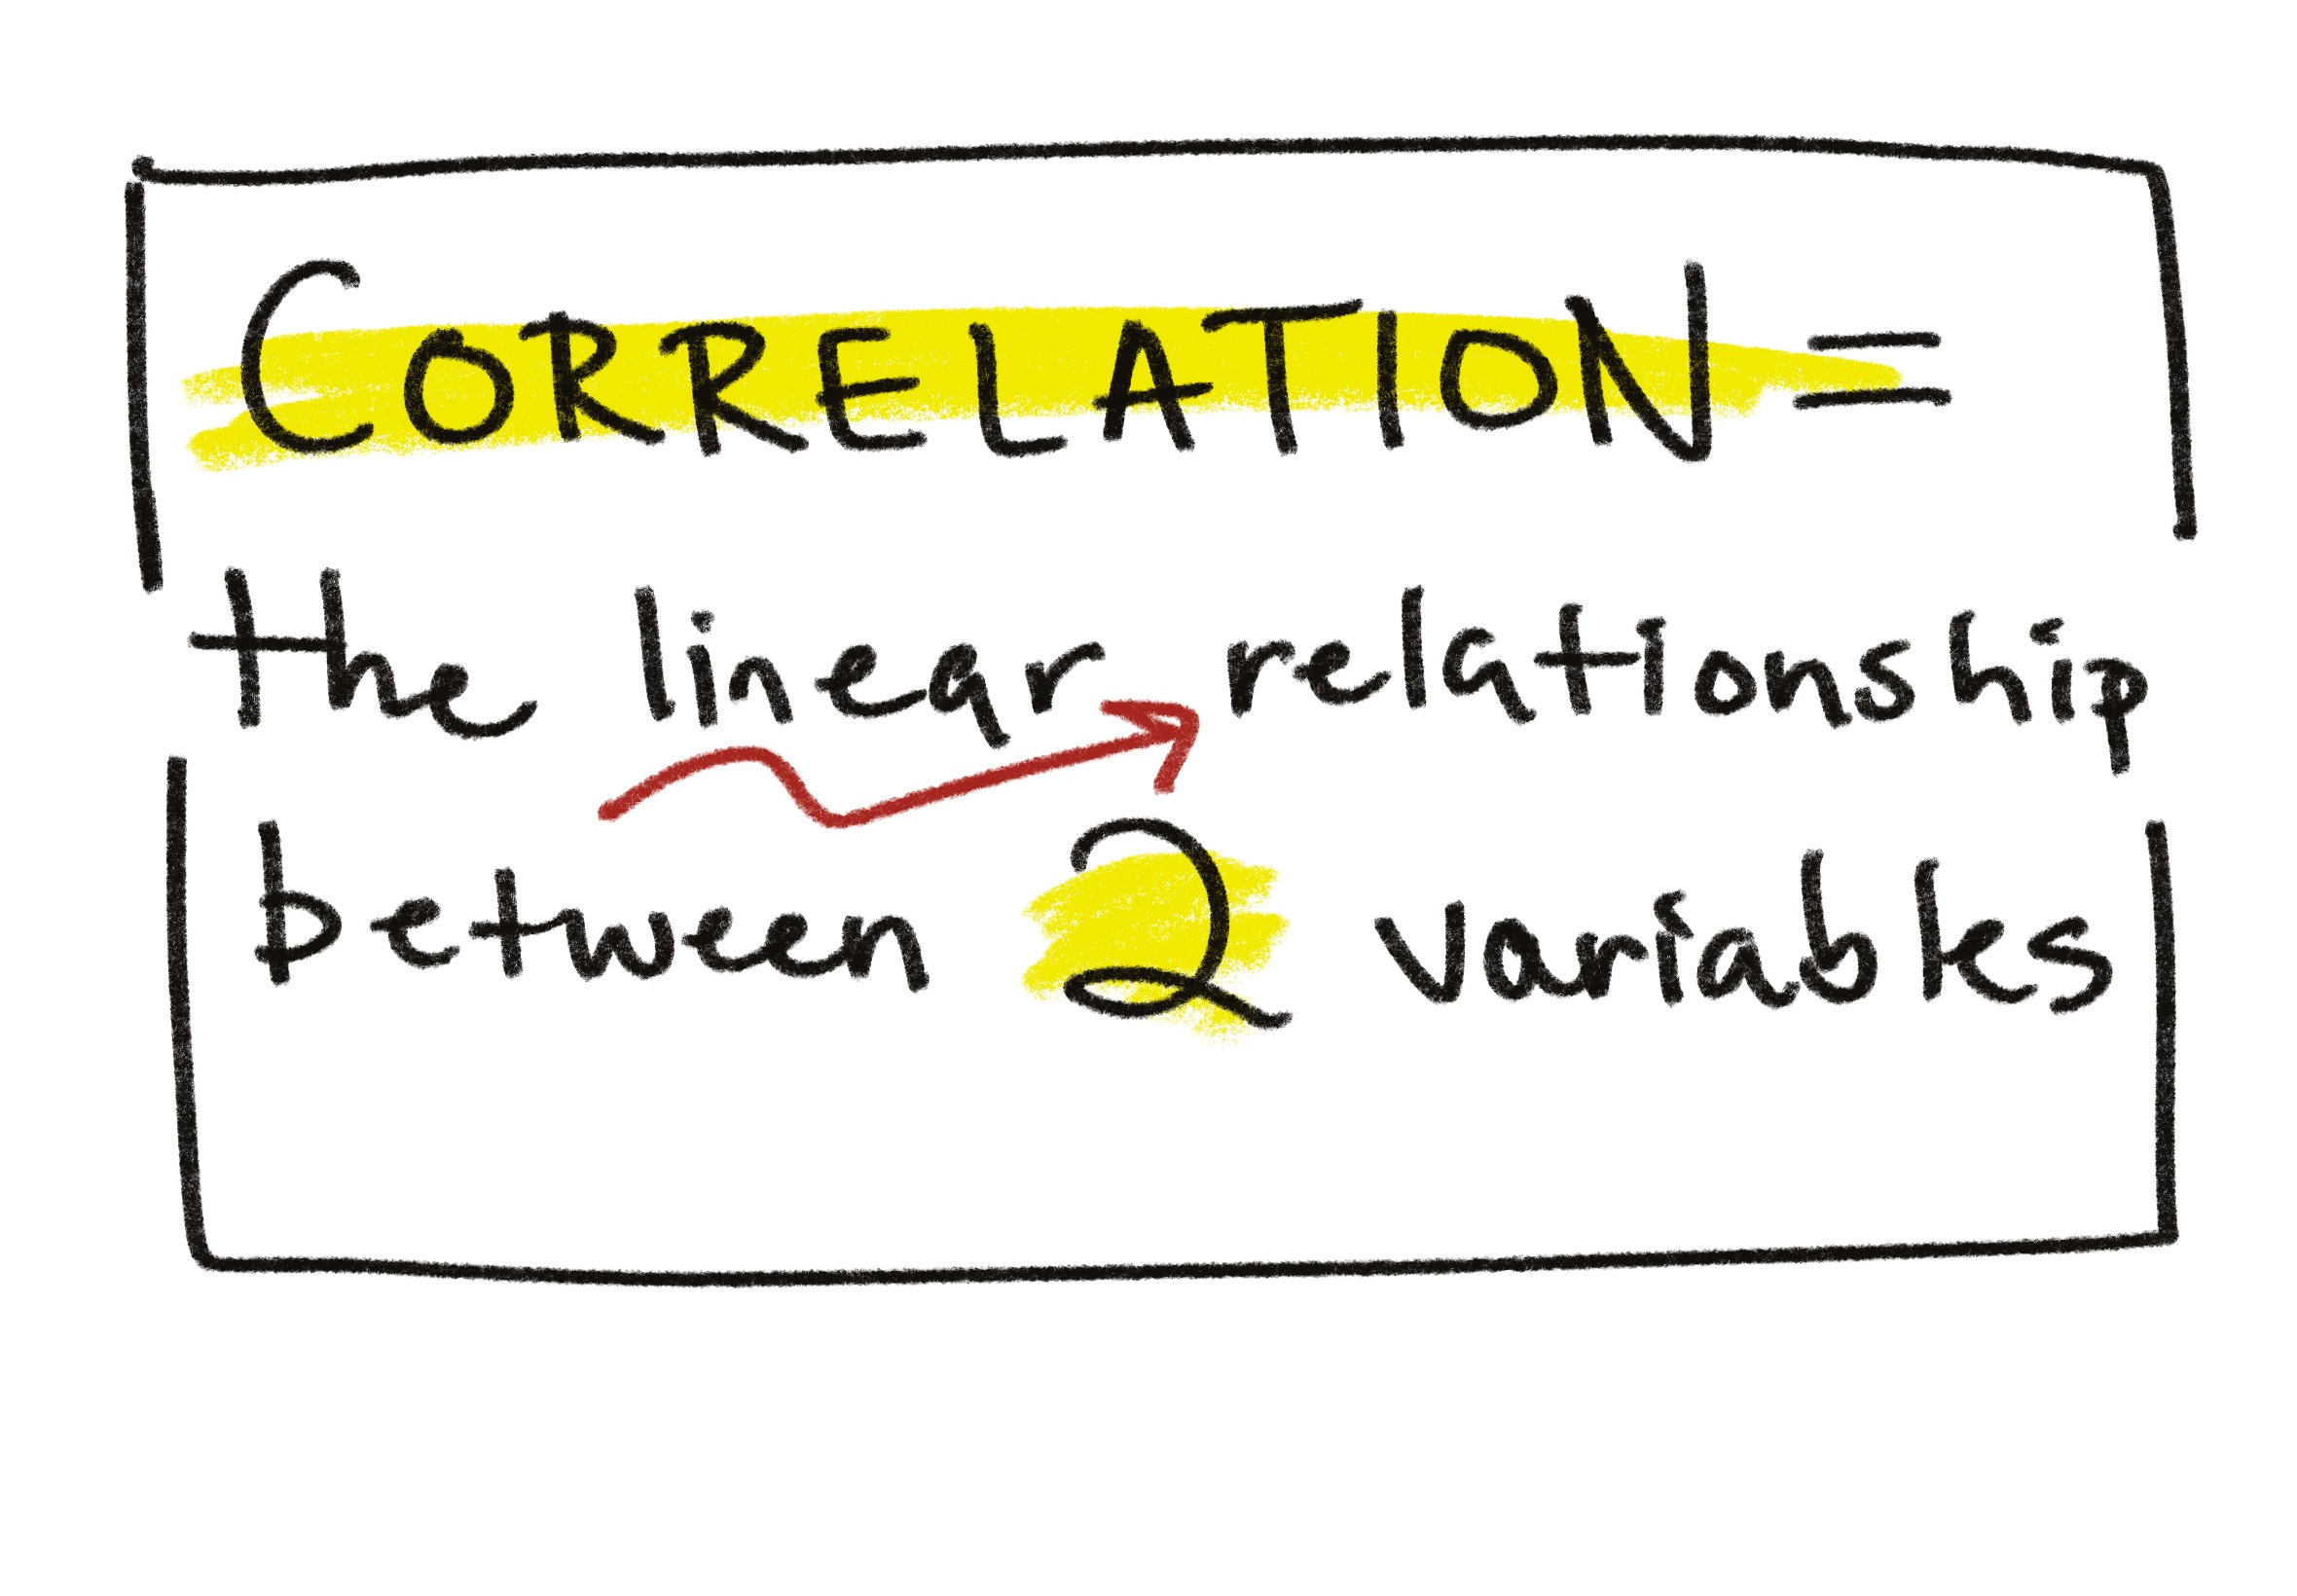 CORRELATION =
the linear relationship
between 2 variables